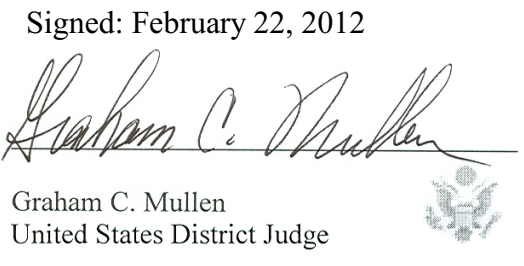 Signed: February 22, 2012
Graham C. Mullen
Graham C. Mullen
United States District Judge